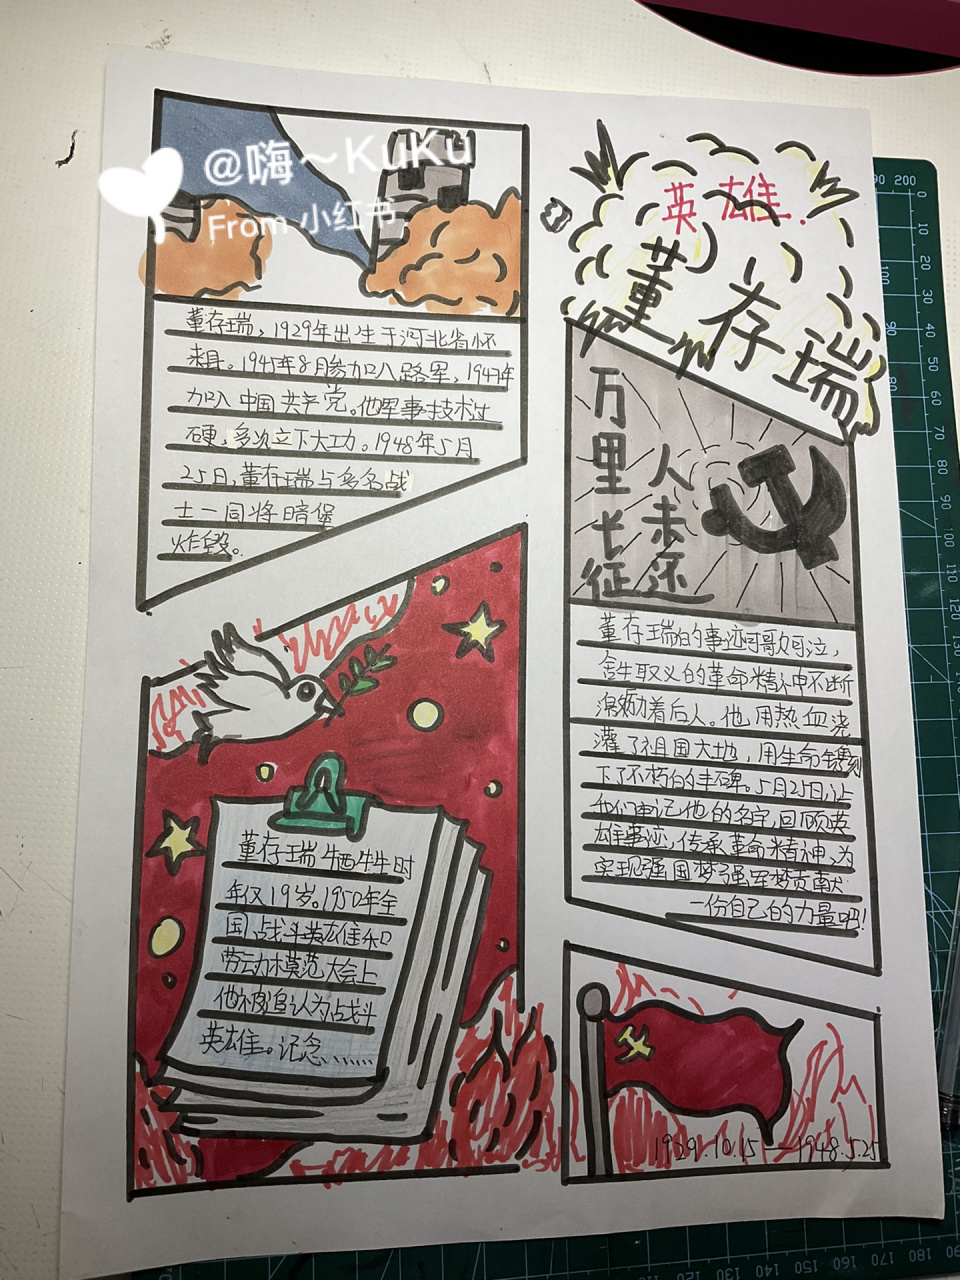 @嗨～KuKu
From 小红书
英雄.
董存瑞
董存瑞，1929年出生于河北省怀
来县。1945年8月参加八路军，1947年
加入中国共产党。他军事技术过
硬，多次立下大功。1948年5月
25日，董存瑞与多名战
士一同将暗堡
炸毁。
万里长征
人未还
董存瑞的事迹可歌可泣，
舍生取义的革命精神不断
激励着后人。他用热血浇
灌了祖国大地，用生命镌刻
下了不朽的丰碑。5月25日，让
我们牢记他的名字，回顾英
雄事迹，传承革命精神、为
实现强国梦强军梦贡献
一份自己的力量吧！
董存瑞牺牲时
年仅19岁。1950年全
国战斗英雄和
劳动模范大会上
他被追认为战斗
英雄。记念……
1929.10.15——1948.5.25
200
0
10
20
30
40
50
60
70
80
90
100
110
120
130